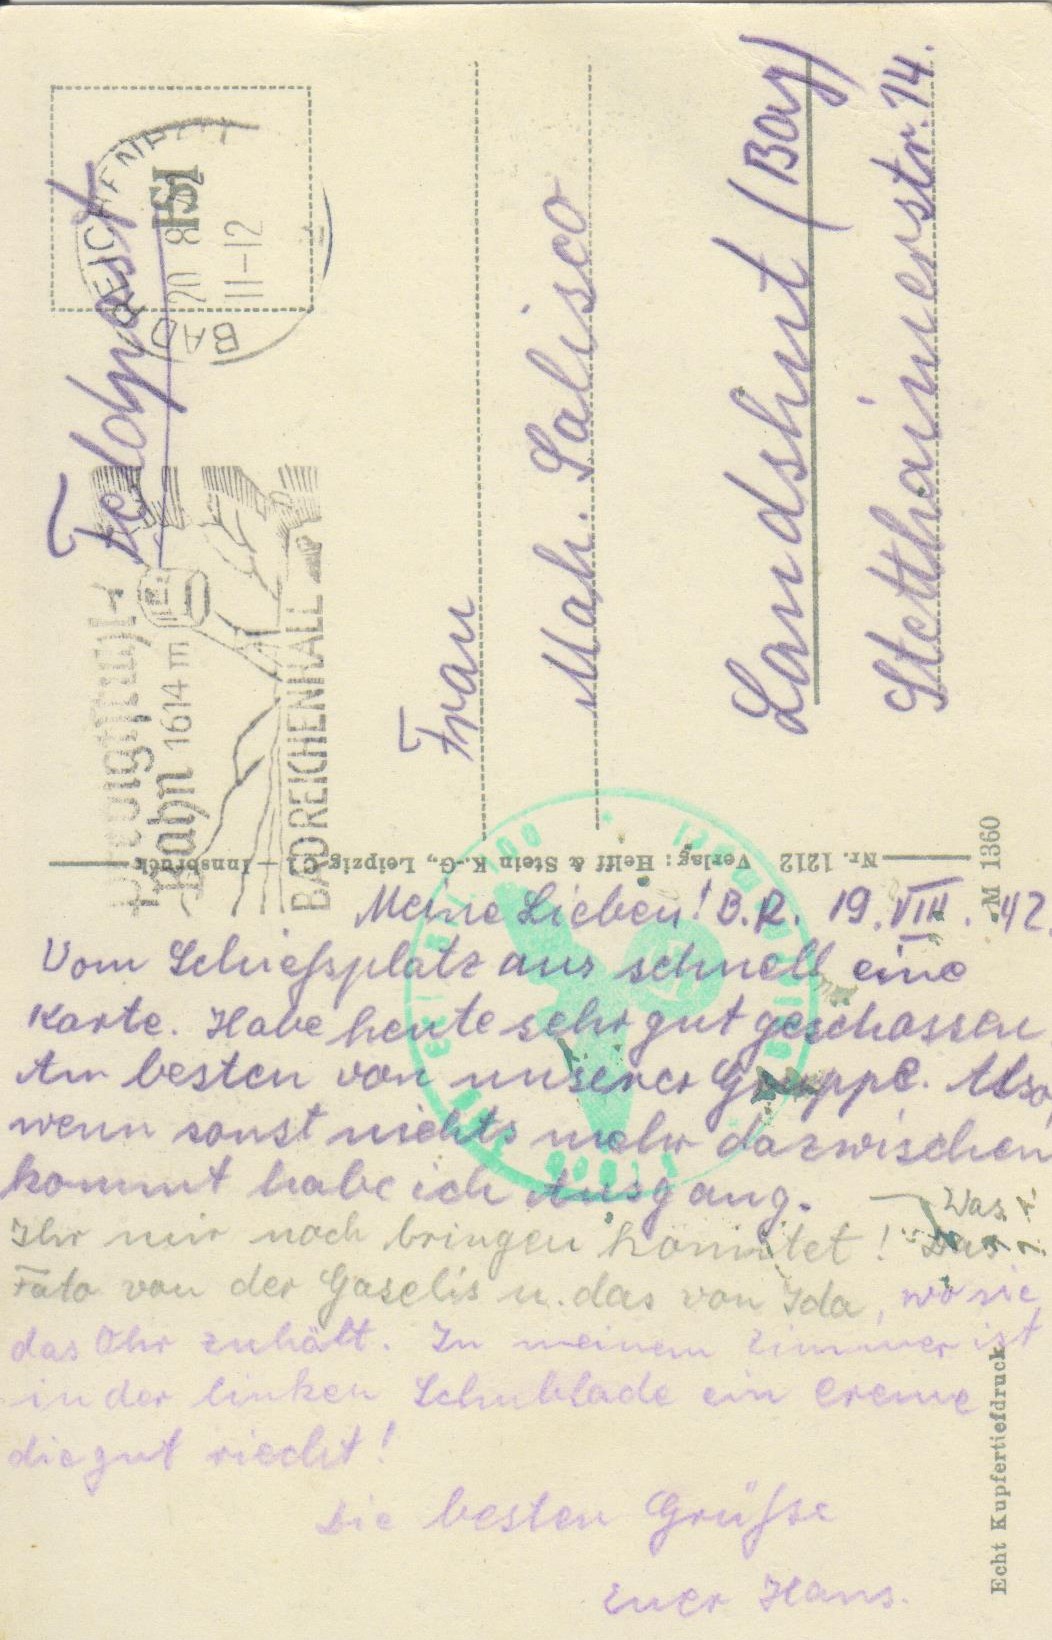 Feldpost
BAD REICHENHALL
20.8.
11-12
Predigtstuhl-
Bahn 1614 m
BAD REICHENHALL
Frau
Math. Salisco
Landshut (Bay)
Stetthaimerstr. 14.
Nr. 1212 Verlag: Helff & Stein K.-G., Leipzig C1 — Innsbruck
M 1360
Meine Lieben! B.R. 19.VIII.42.
Vom Schießplatz aus schnell eine
Karte. Habe heute sehr gut geschossen
Am besten von unserer Gruppe. Also,
wenn sonst nichts mehr dazwischen
kommt habe ich Ausgang. — Was
Ihr mir noch bringen könntet! Das
Foto von der Gaselis u. das von Ida, wo sie
das Ohr zuhält. In meinem Zimmer ist
in der linken Schublade ein Creme
die gut riecht!
Die besten Grüße
Euer Hans.
Echt Kupfertiefdruck